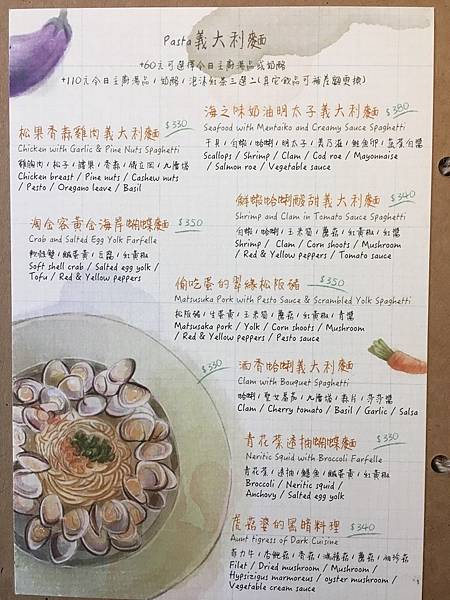 Pasta 義大利麵
+60元可選擇今日主廚湯品或奶酪
+110元今日主廚湯品/奶酪/泡沫紅茶三選二(其它飲品可補差額更換)
松果香蒜雞肉義大利麵 $330
Chicken with Garlic & Pine Nuts Spaghetti
雞胸肉/松子/腰果/青森/俄立岡/九層塔
Chicken breast / Pine nuts / Cashew nuts
/ Pesto / Oregano leave / Basil
海之味奶油明太子義大利麵 $380
Seafood with Mentaiko and Creamy Sauce Spaghetti
干貝/白蝦/蛤蜊/明太子/美乃滋/鮭魚卵/蔬菜白醬
Scallops / Shrimp / Clam / Cod roe / Mayonnaise
/ Salmon roe / Vegetable sauce
淘金客黃金海岸蝴蝶麵 $350
Crab and Salted Egg Yolk Farfelle
軟殼蟹/鹹蛋黃/豆腐/紅黃椒
Soft shell crab / Salted egg yolk /
Tofu / Red & Yellow peppers
鮮蝦蛤蜊酸甜義大利麵 $340
Shrimp and Clam in Tomato Sauce Spaghetti
白蝦/蛤蜊/玉米筍/蘑菇/紅黃椒/紅醬
Shrimp / Clam / Corn shoots / Mushroom
/ Red & Yellow peppers / Tomato sauce
偷吃蛋的翠綠松阪豬 $350
Matsusuka Pork with Pesto Sauce & Scrambled Yolk Spaghetti
松阪豬/生蛋黃/玉米筍/蘑菇/紅黃椒/青醬
Matsusaka pork / Yolk / Corn shoots / Mushroom
/ Red & Yellow peppers / Pesto sauce
$330 酒香蛤蜊義大利麵
Clam with Bouquet Spaghetti
蛤蜊/聖女番茄/九層塔/蒜片/莎莎醬
Clam / Cherry tomato / Basil / Garlic / Salsa
青花菜透抽蝴蝶麵 $330
Neritic Squid with Broccoli Farfelle
青花菜/透抽/鯷魚/鹹蛋黃/紅黃椒
Broccoli / Neritic squid /
Anchovy / Salted egg yolk
虎菇婆的黑暗料理 $340
Aunt tigress of Dark Cuisine
菲力牛/杏鮑菇/香菇/鴻禧菇/蘑菇/袖珍菇
Filet / Dried mushroom / Mushroom /
Hypsizigus marmoreus / oyster mushroom /
Vegetable cream sauce